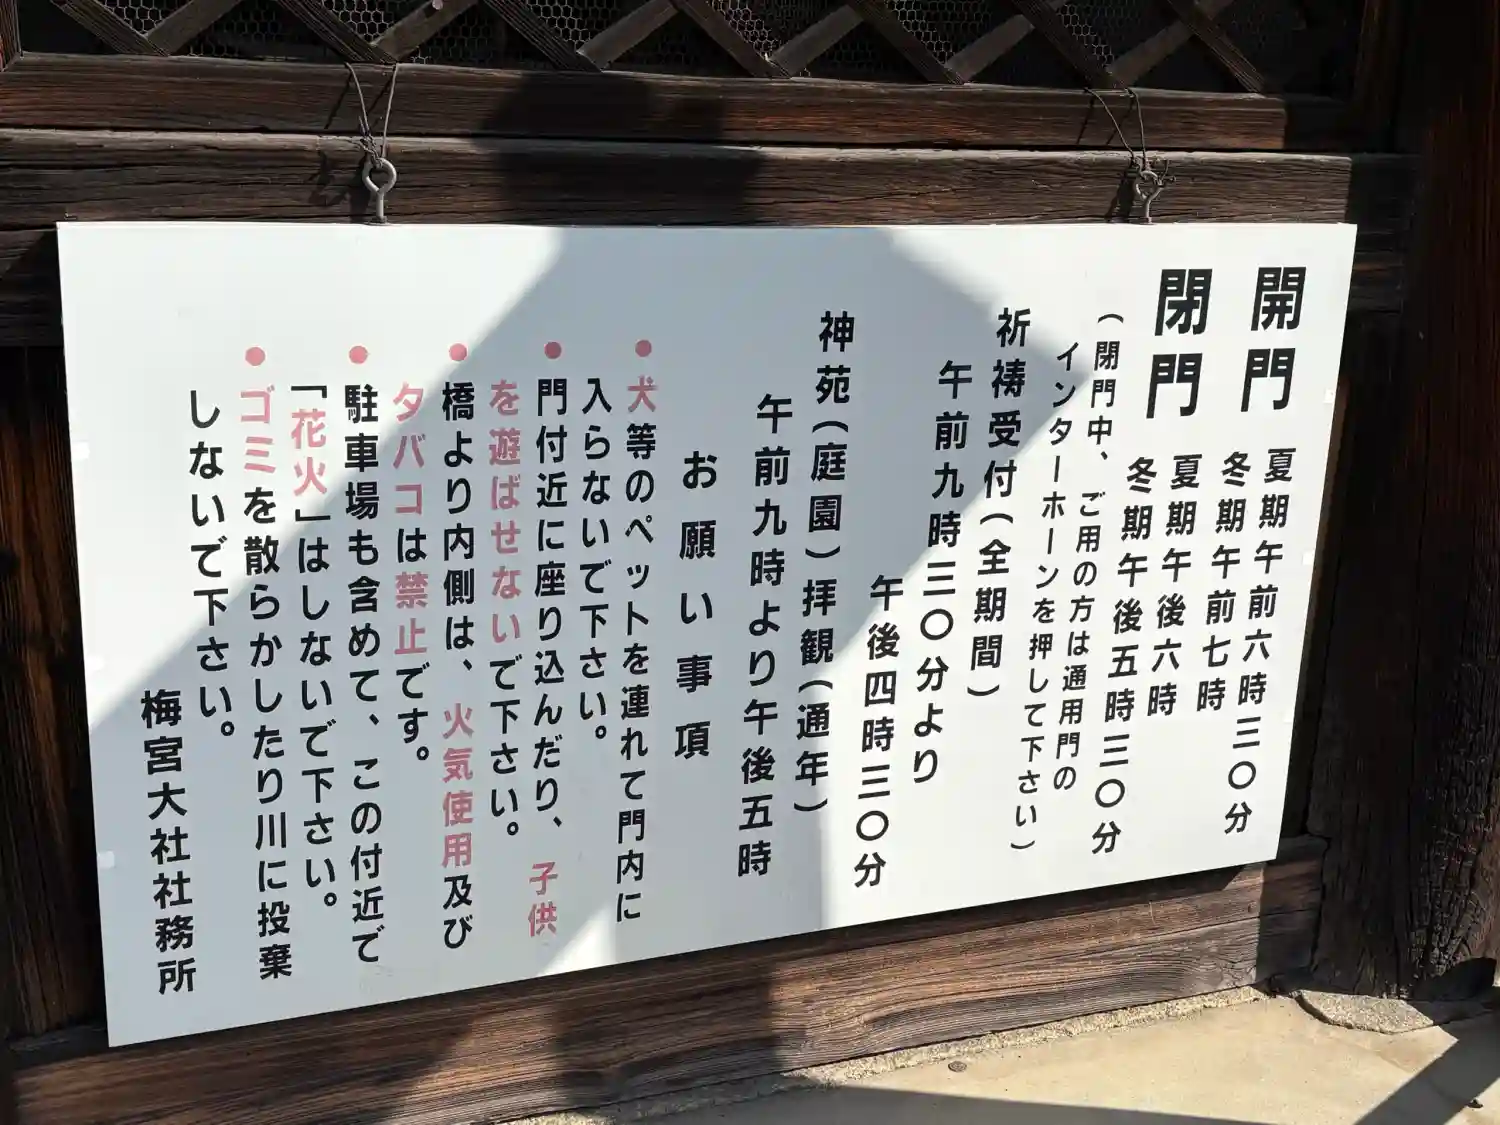 開門 夏期午前六時三〇分
冬期午前七時
閉門 夏期午後六時
冬期午後五時三〇分
(閉門中、ご用の方は通用門の
インターホーンを押して下さい)
祈祷受付(全期間)
午前九時三〇分より
午後四時三〇分
神苑(庭園)拝観(通年)
午前九時より午後五時
お願い事項
●犬等のペットを連れて門内に
入らないで下さい。
●門付近に座り込んだり、子供
を遊ばせないで下さい。
●橋より内側は、火気使用及び
タバコは禁止です。
●駐車場も含めて、この付近で
「花火」はしないで下さい。
●ゴミを散らかしたり川に投棄
しないで下さい。
梅宮大社社務所